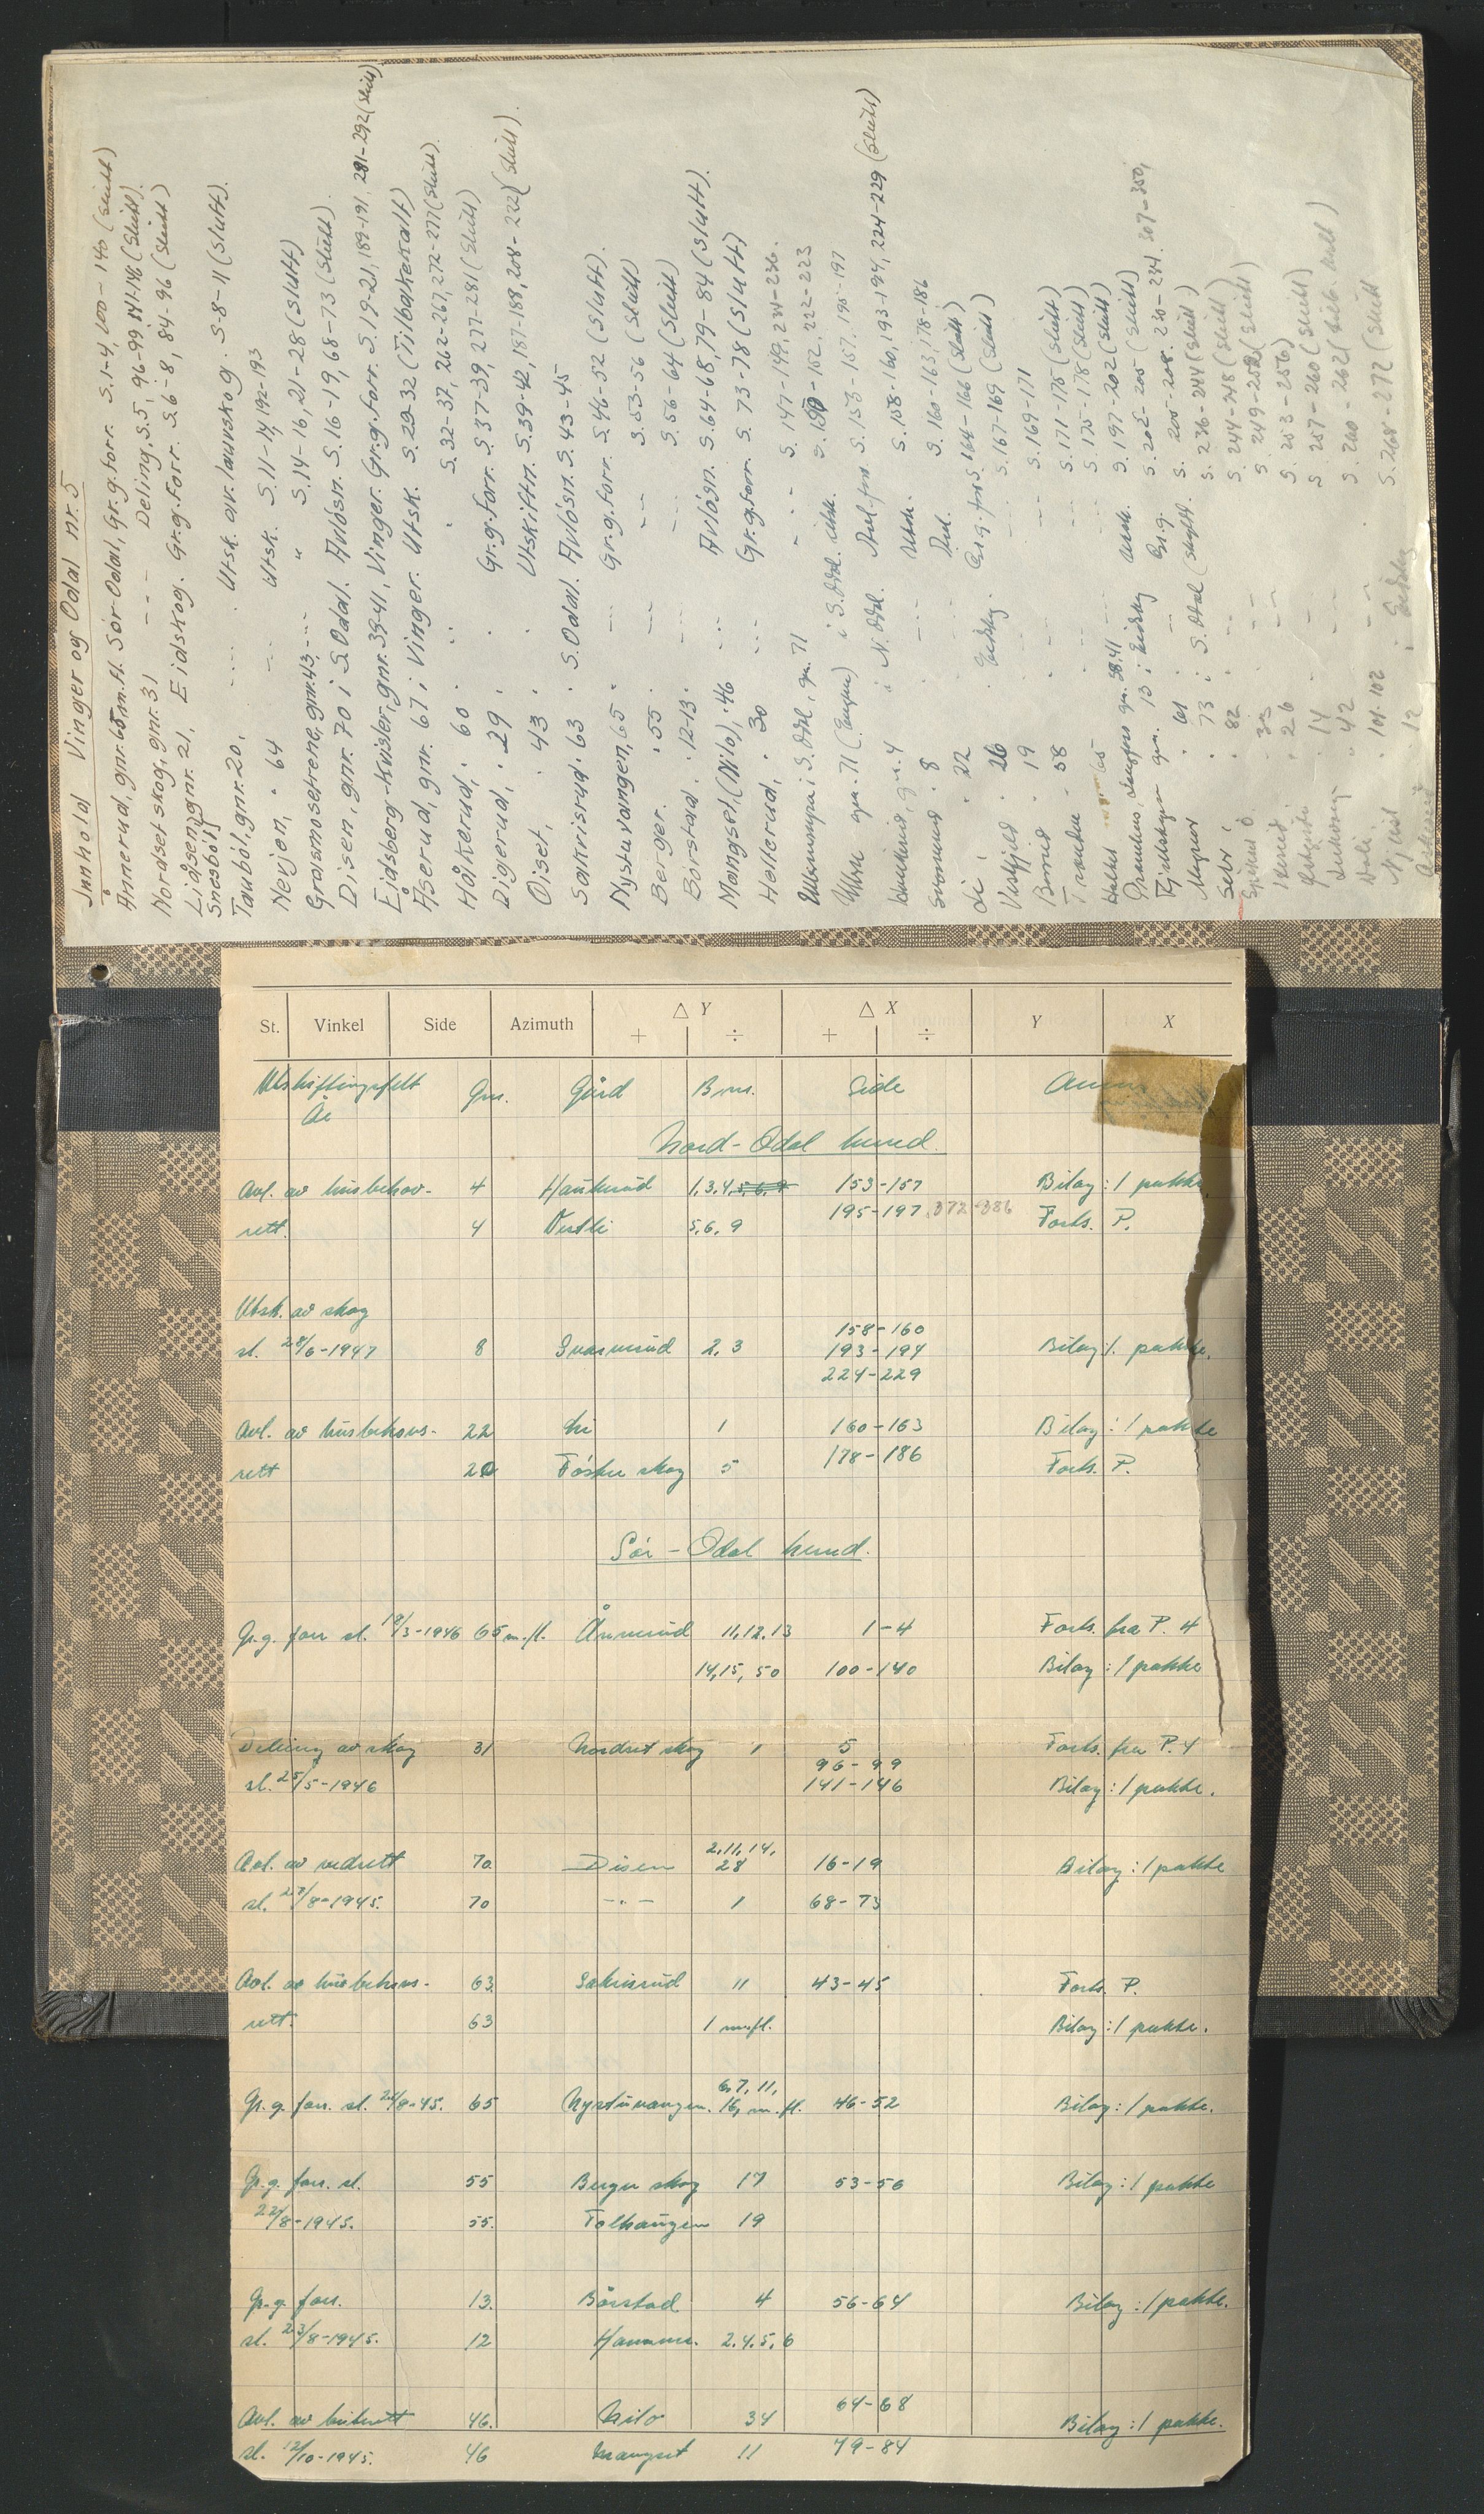 Innhold Vinger og Odal nr. 5
Ånnerud, gnr. 65, m.fl. Sør-Odal, Gr.g.forr. S. 1-4, 100-140 (slutt)
Nordsetskog, gnr. 31 -"- Deling, S. 5, 96-99, 141-146 (slutt).
Liåsen, gnr. 21, Eidskog. Gr.g.forr. S. 6-8, 84-96 (slutt)
Snesbøl
Taubøl, gnr. 20, -"- Utsk. av lauvskog. S. 8-11 (slutt).
Nerjen, " 64 -"- Utsk. S. 11-14, 192-193
Grasmosetrene, gnr. 43, -"- " S. 14-16, 21-28 (slutt)
Disen, gnr. 70 i S. Odal. Avløsn. S. 16-19, 68-73 (slutt).
Eidsberg-Kvisler, gnr. 39-41, Vinger. Gr.g.forr. S. 19-21, 189-191, 281-292 (slutt)
Åserud, gnr. 67 i Vinger. Utsk. S. 29-32 (Tilbakekalt)
Håkerud, " 60 " -"- " S. 32-37, 262-267, 272-277 (slutt).
Digerud, " 29 " Gr.g.forr. S. 37-39, 277-281 (slutt)
Øiset, " 43 " Utskiftn. S. 39-42, 187-188, 208-222 (slutt).
Sakrisrud " 63 " S. Odal. Avløsn. S. 43-45
Nystuvangen, 65 " -"- Gr.g.forr. S. 46-52 (slutt).
Berger " 55 " -"- -"- S. 53-56 (slutt)
Børstad " 12-13 " -"- -"- S. 56-64 (slutt)
Mangset, (Nilo), " 46 -"- Avløsn. S. 64-68, 79-84 (slutt).
Hellerud, " 30 -"- Gr.g.forr. S. 73-78 (slutt)
i S. Odal, gn. 71 " -"- S. 147-149, 234-236.
gn. 71 i S. Odal. utsk. S. 150-152, 222-223
gn. 4 i N. Odal. S. 153-157, 195-197
" 8 -"- Utsk. S. 158-160, 193-194, 224-229 (slutt)
Li, " 22 -"- S. 160-163, 178-186
" 26 Eidskog. Gr.g.forr S. 164-166 (slutt)
" 19 S. 167-169 (slutt)
" 58 S. 169-171
" 65 S. 171-175 (slutt)
S. 175-178 (slutt)
gn. 38,41 S. 197-202 (slutt)
gn. 13 i Eidskog utsk. S. 202-205 (slutt)
" 61 Gr.g. S. 205-208, 230-234, 307-350,
" 73 i S. Odal S. 236-244 (slutt)
" 82 S. 244-248 (slutt)
S. 249-252 (slutt)
" 26 S. 253-256)
" 14 S. 257-260 (slutt)
" 42 S. 260-262
" 101-102
" 12 Eidskog S. 268-272 (slutt
St. Vinkel Side Azimuth △ Y + ÷ △ X + ÷ Y X
Utskiftingsfelt Gnr. Gård Bnr. Side Anm
År
Nord-Odal herred.
Avl. av husbehov- 4 Haukerud 1,3,4,5,6,9 153-157 Bilag: 1 pakke
195-197, 372-386
rett. 4 Vestli 5,6,9 Forts. P.
Utsk. av skog
158-160
sl. 28/6-1947 8 Svarverud 2, 3 193-194 Bilag: 1. pakke.
224-229
Avl. av husbehovs- 22 Li 1 160-163 Bilag: 1 pakke
rett 20 Fósker skog 5 178-186 Forts. P.
Sør-Odal herred.
Gr.g. forr sl. 19/3-1946 65 m.fl. Ånnerud 11,12,13 1-4 Forts. fra P. 4
14,15, 50 100-140 Bilag: 1 pakke
Deling av skog 31 Nordset skog 1 5 Forts. fra P. 4
96-99
sl. 25/5-1946 141-146 Bilag: 1 pakke.
2,11,14,
Avl. av vedrett 70 Disen 28 16-19 Bilag: 1 pakke
sl. 27/8-1945. 70 -"- 1 68-73
Avl. av husbehovs- 63 Sakrisrud 11 43-45 Forts. P.
rett. 63 1 m.fl. Bilag: 1 pakke.
6,7,11,
Gr.g. forr. sl. 24/8-45. 65 Nystuvangen. 16, m.fl. 46-52 Bilag: 1 pakke.
Gr.g. forr. sl. 55 Berger skog 17 53-56 Bilag: 1 pakke
22/8-1945. 55. Folhaugen 19
Gr.g. forr. 13. Børstad 4 56-64 Bilag: 1 pakke.
sl. 23/8-1945. 12 Hammer. 2,4,5,6
64-68
Avl. av 46. Nilo 34 Bilag: 1 pakke.
sl. 12/10-1945. 46 Mangset 11 79-84